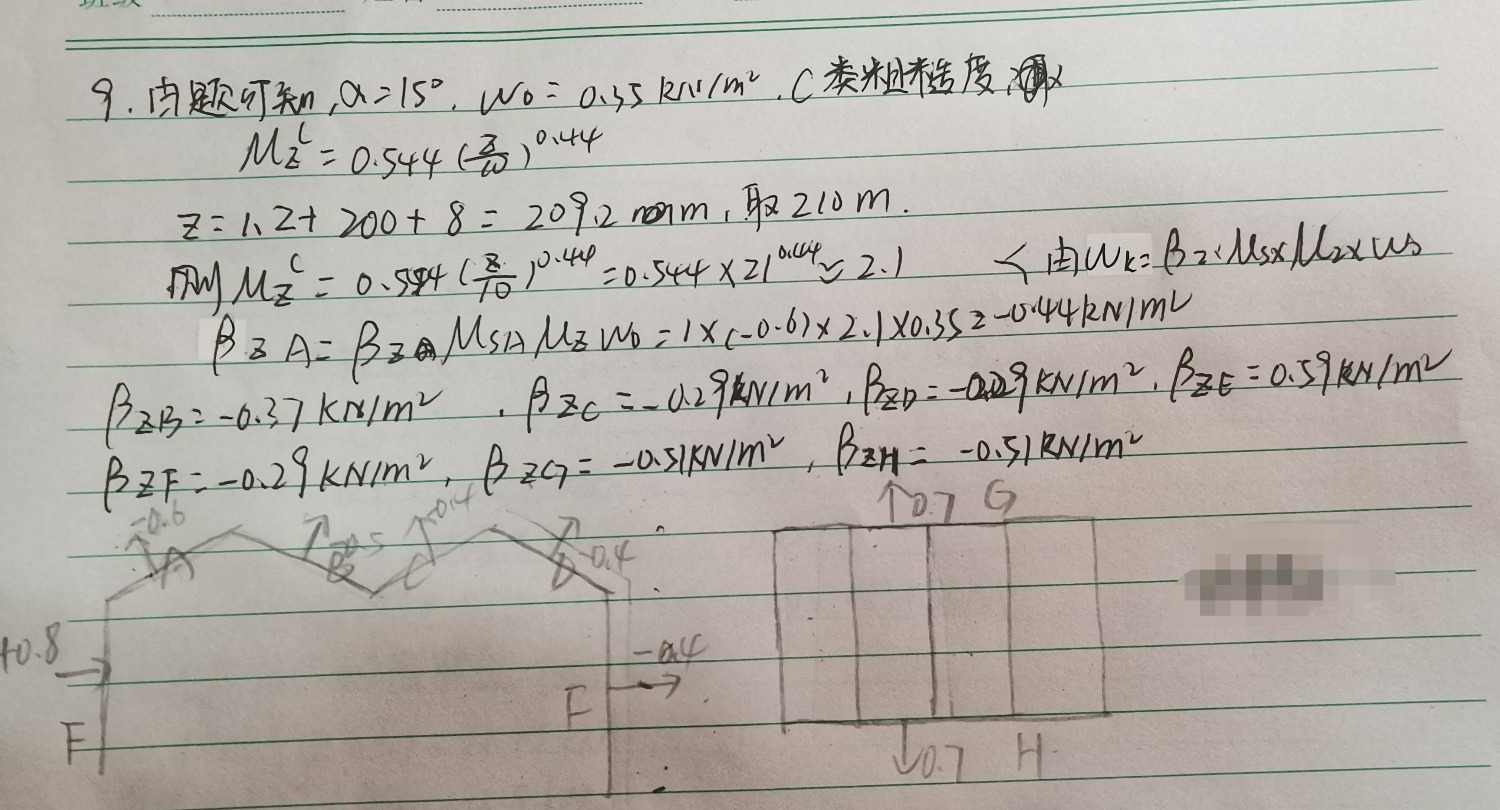 9. 由题可知, α=15°. W₀=0.35 KN/m². C类粗糙度,取
μz^c=0.544(z/10)^0.44
z=1.2+200+8=209.2 m, 取210m.
则μz^c=0.544(z/10)^0.44=0.544×21^0.44≈2.1 < 由Wk=βz·μs×μz×W₀
βzA=βz μsA μz W₀=1×(-0.6)×2.1×0.35=-0.44kN/m²
βzB=-0.37KN/m². βzC=-0.29KN/m², βzD=-0.29KN/m². βzE=0.59KN/m²
βzF=-0.29KN/m², βzG=-0.51KN/m², βzH=-0.51KN/m²
-0.6 A B -0.5 C -0.4 D -0.4 0.7 G
+0.8 -0.4
F F 0.7 H